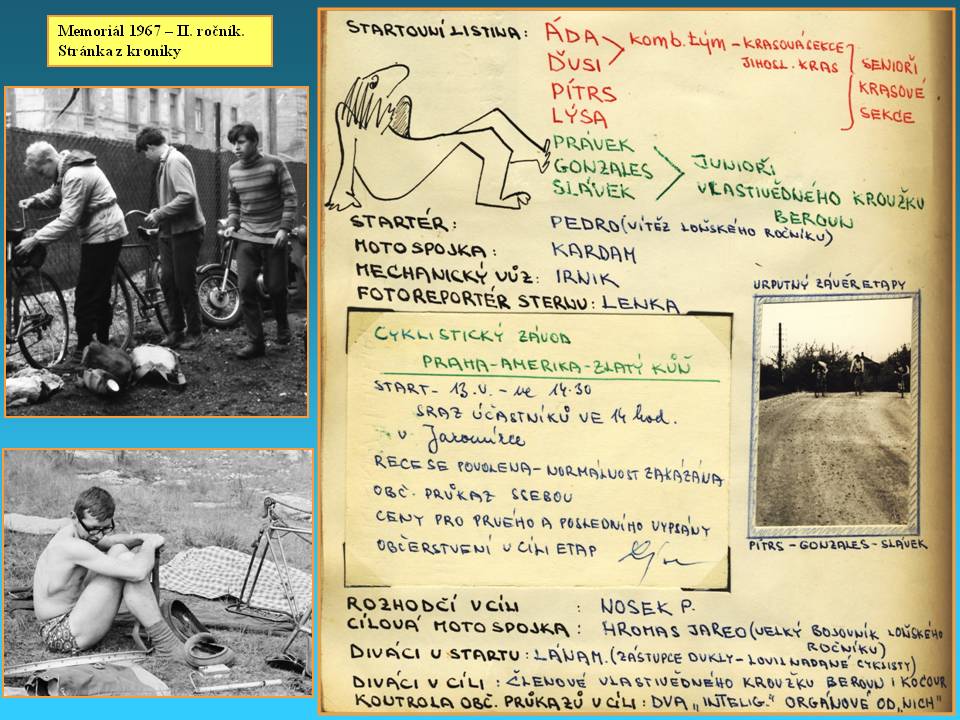 Memoriál 1967 – II. ročník.
Stránka z kroniky
STARTOVNÍ LISTINA: ÁDA
ĎUSI
PÍTRS
LÝSA
komb. tým – KRASOVÁ SEKCE
JIHOSL. KRAS
SENIOŘI
KRASOVÉ
SEKCE
PRÁVEK
GONZALES
SLÁVEK
JUNIOŘI
VLASTIVĚDNÉHO KROUŽKU
BEROUN
STARTÉR: PEDRO (VÍTĚZ LOŇSKÉHO ROČNÍKU)
MOTOSPOJKA: KARDAM
MECHANICKÝ VŮZ: IRNIK
FOTOREPORTÉR STERNU: LENKA
CYKLISTICKÝ ZÁVOD
PRAHA–AMERIKA–ZLATÝ KŮŇ
START – 13.V. – ve 14.30
SRAZ ÚČASTNÍKŮ VE 14 hod.
v Jaromírce
RECESE POVOLENA – NORMÁLNOST ZAKÁZÁNA
OBČ. PRŮKAZ SSEBOU
CENY PRO PRVÉHO A POSLEDNÍHO VYPSÁNY
OBČERSTVENÍ V CÍLI ETAP
URPUTNÝ ZÁVĚR ETAPY
PÍTRS – GONZALES – SLÁVEK
ROZHODČÍ V CÍLI : NOSEK P.
CÍLOVÁ MOTOSPOJKA : HROMAS JAREO (VELKÝ BOJOVNÍK LOŇSKÉHO
ROČNÍKU)
DIVÁCI U STARTU : LÁNAM. (ZÁSTUPCE DUKLY – LOVIL NADANÉ CYKLISTY)
DIVÁCI V CÍLI : ČLENOVÉ VLASTIVĚDNÉHO KROUŽKU BEROUN I KOCOUR
KONTROLA OBČ. PRŮKAZŮ V CÍLI : DVA „INTELIG." ORGÁNOVÉ OD „NICH"